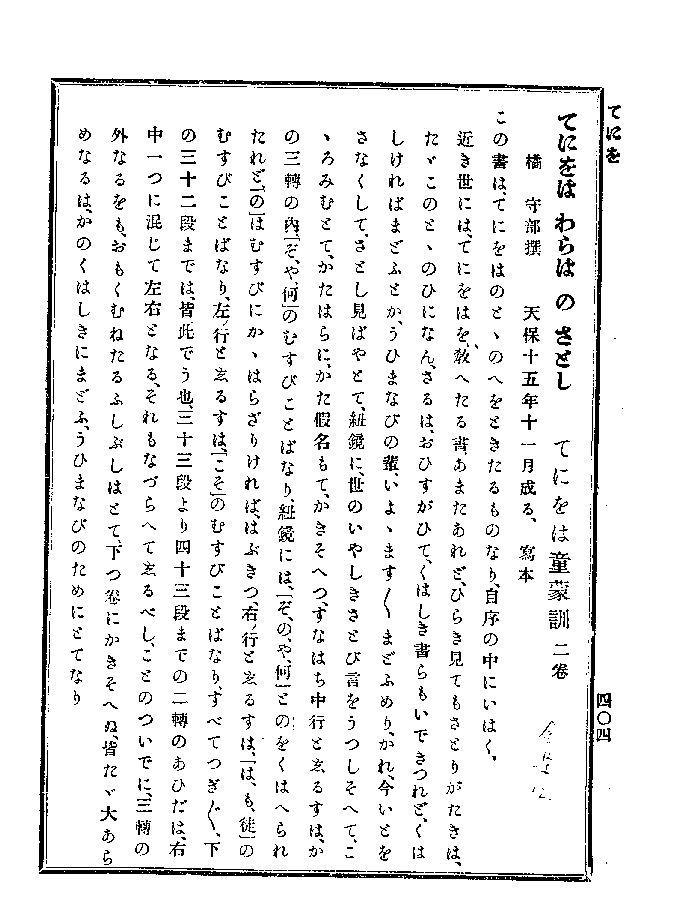 てにを
四〇四
てにをは わらは の さとし てにをは童蒙訓 二卷
橘 守部撰 天保十五年十一月成る、 寫本
この書は、てにをはのとゝのへをときたるものなり、自序の中にいはく、
近き世には、てにをはを、敎へたる書あまたあれど、ひらき見てもさとりがたきは、
たゞこのとゝのひになん、さるは、おひすがひて、くはしき書らもいできつれど、くは
しければまどふとか、うひまなびの輩、いよゝます〱まどふめり、かれ、今いとを
さなくして、さとし見ばやとて、紐鏡に、世のいやしきさとび言をうつしそへて、こ
ゝろみむとて、かたはらに、かた假名もて、かきそへつ、すなはち中行とゑるすは、か
の三轉の內、「ぞ、や、何」のむすびことばなり、紐鏡には、「ぞ、の、や、何」とのをくはへられ
たれど、「の」はむすびにかゝはらざりければ、はぶきつ、右ノ行とゑるすは、「は、も、徒」の
むすびことばなり、左ノ行とゑるすは、「こそ」のむすびことばなり、すべてつぎ〲、下
の三十二段までは、皆此でう也、三十三段より四十三段までの二轉のあひだは、右
中一つに混じて左右となる、それもなづらへてゑるべし、ことのついでに、三轉の
外なるをも、おもくむねたるふしぶしはとて、下つ卷にかきそへぬ、皆たゞ大あら
めなるは、かのくはしきにまどふ、うひまなびのためにとてなり